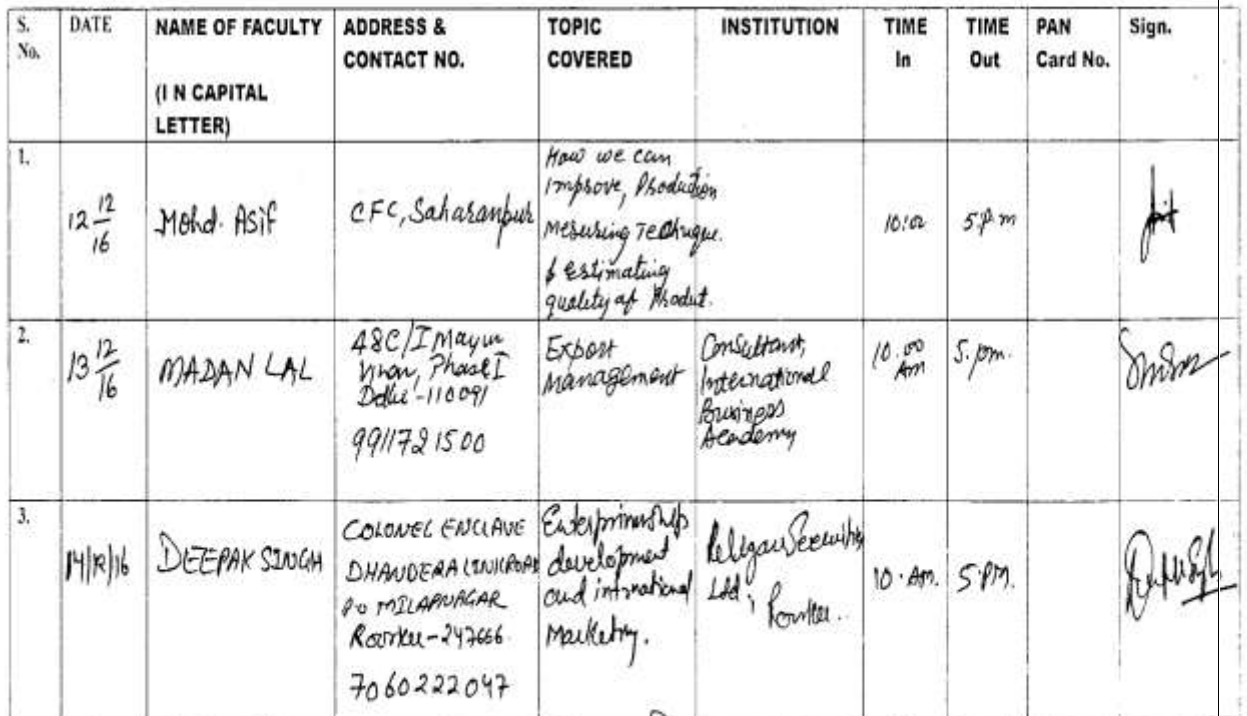 S. No. DATE NAME OF FACULTY (I N CAPITAL LETTER) ADDRESS & CONTACT NO. TOPIC COVERED INSTITUTION TIME In TIME Out PAN Card No. Sign.
1.
12 12/16
Mohd. Asif
CFC, Saharanpur
How we can
Improve, Production
Mesuring Technique.
& Estimating
quality of Produt.
10:00
5 P.m
2.
13 12/16
MADAN LAL
48C/I Mayur
Vihar, Phase I
Delhi-110091
9911721500
Export
Management
Consultant,
International
Business
Academy
10.00
Am
5. pm.
3.
14/12/16
DEEPAK SINGH
COLONEL ENCLAVE
DHANDERA LINK ROAD
P.O MILAPNAGAR
Roorkee-247666
7060222047
development
and international
Marketing.
Ltd,
Roorkee.
10. AM.
5 PM.